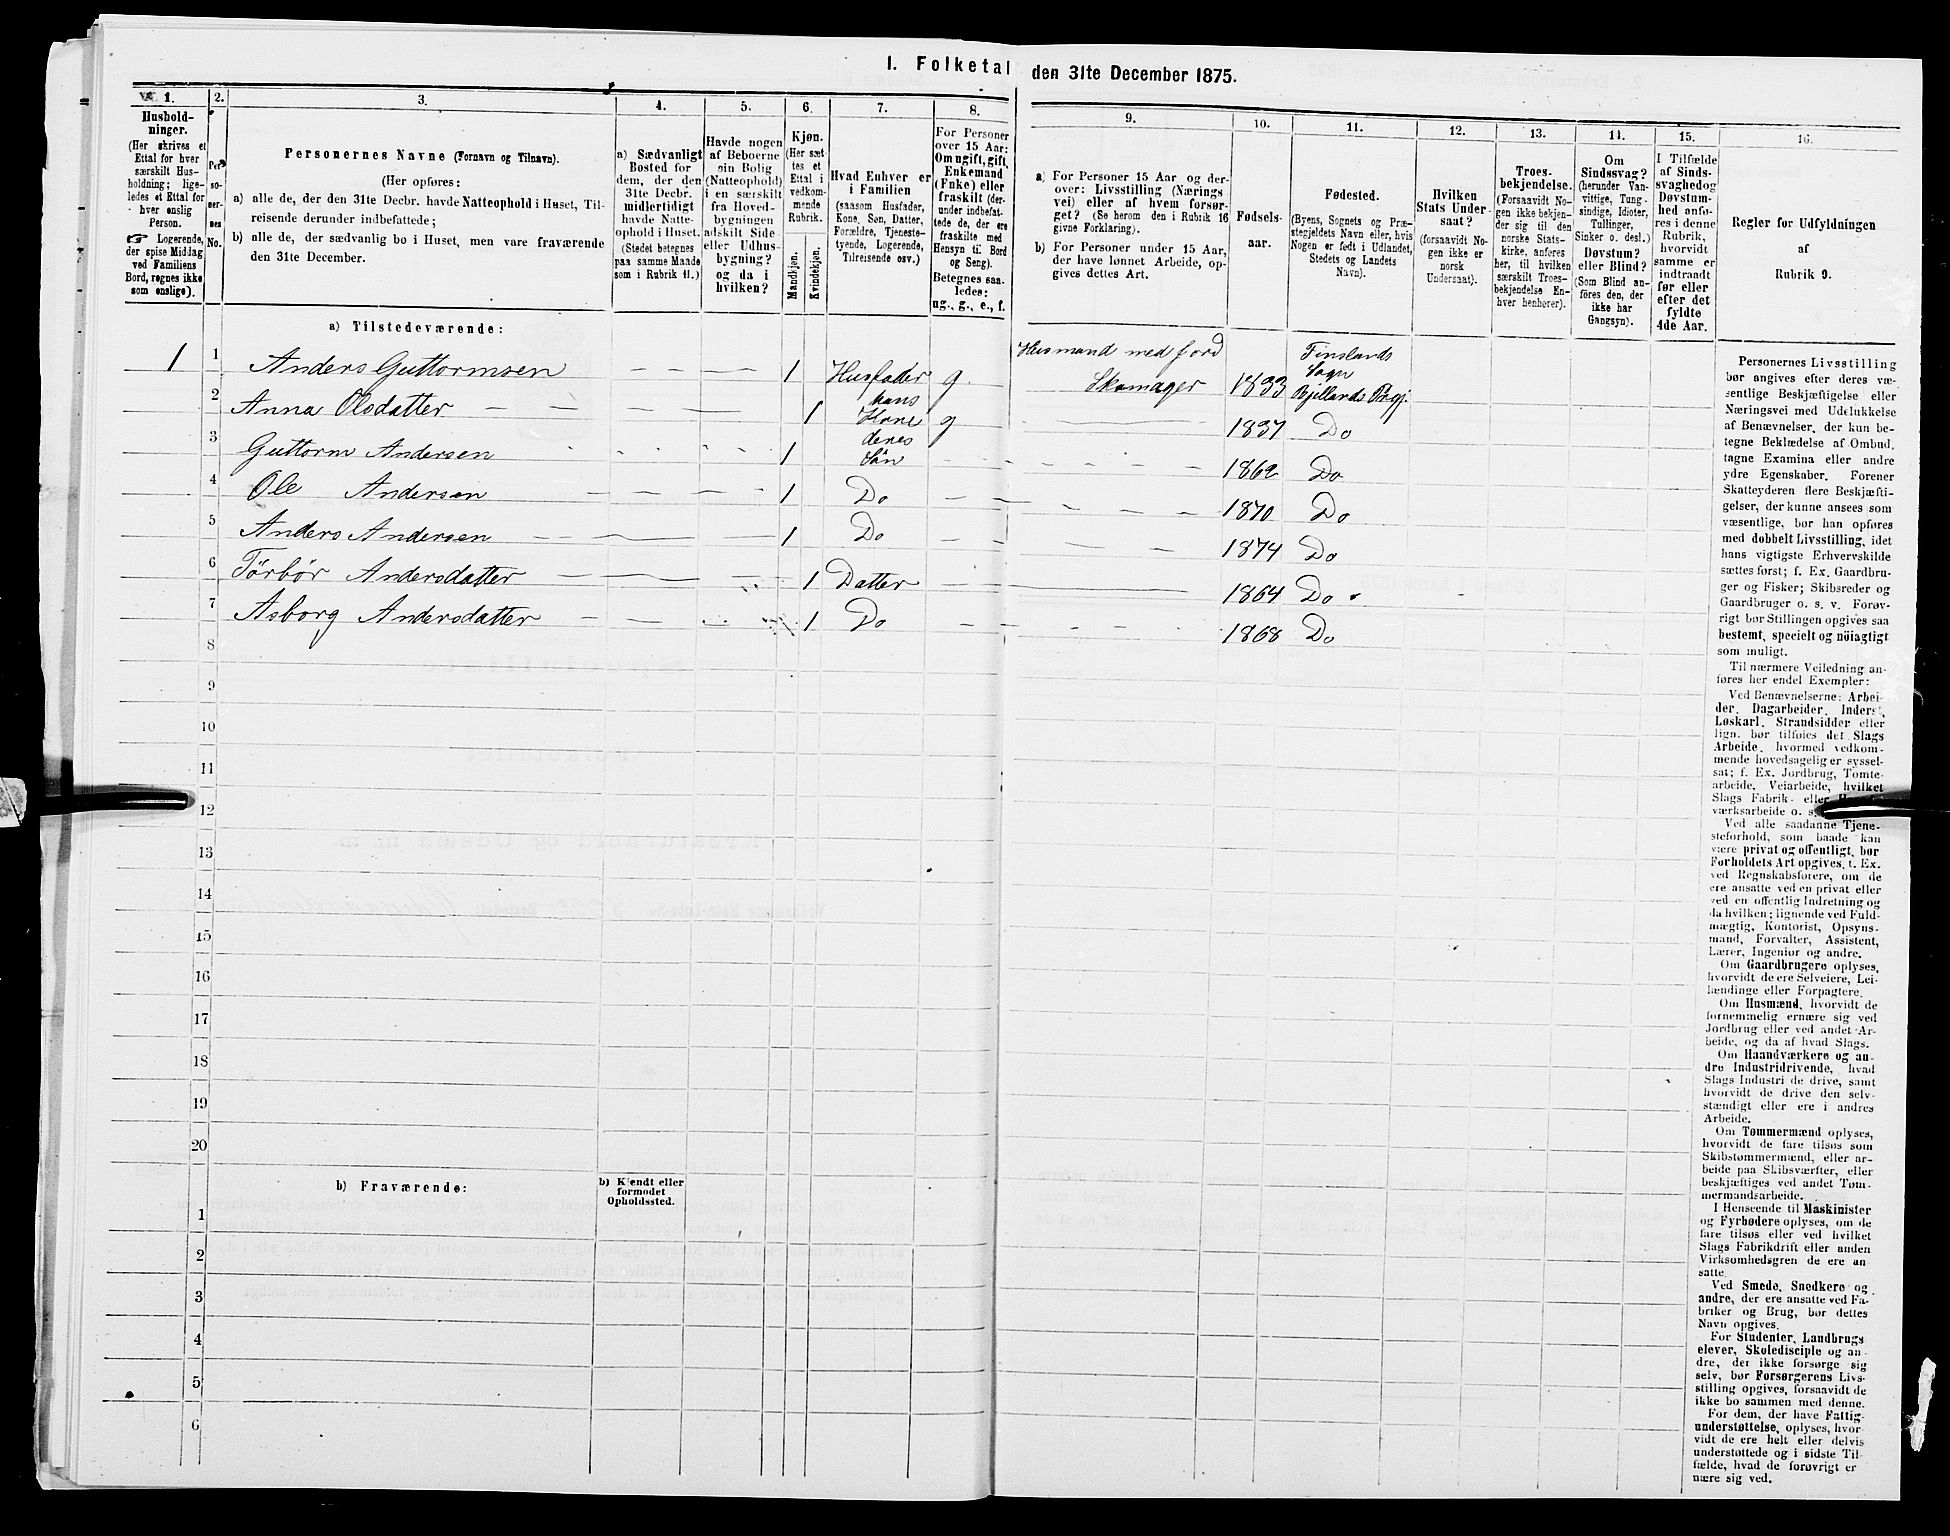 1. Folketal den 31te December 1875.
1.
Husholdninger.
(Her skrives et
Ettal for hver
særskilt Husholdning; ligeledes et Ettal for
hver enslig
Person.
☞ Logerende,
der spise Middag
ved Familiens
Bord, regnes ikke
som enslige).
2.
Personernes No.
3.
Personernes Navne (Fornavn og Tilnavn).
(Her opføres:
a) alle de, der den 31te Decbr. havde Natteophold i Huset, Tilreisende derunder indbefattede;
b) alle de, der sædvanlig bo i Huset, men vare fraværende
den 31te December.
4.
a) Sædvanligt
Bosted for
dem, der den
31te Decbr.
midlertidigt
havde Natteophold i Huset.
(Stedet betegnes
paa samme Maade
som i Rubrik 11.)
5.
Havde nogen
af Beboerne
sin Bolig
(Natteophold)
i en særskilt
fra Hovedbygningen
adskilt Side-
eller Udhusbygning?
og da i
hvilken?
6.
Kjøn.
(Her sættes et
Ettal i
vedkommende
Rubrik.
Mandkjøn.
Kvindekjøn.
7.
Hvad Enhver er
i Familien
(saasom Husfader,
Kone, Søn, Datter,
Forældre, Tjenestetyende, Logerende,
Tilreisende osv.)
8.
For Personer
over 15 Aar:
Om ugift, gift,
Enkemand
(Enke) eller
fraskilt (derunder indbefattede de, der ere
fraskilte med
Hensyn til Bord
og Seng).
Betegnes saaledes:
ug., g., e., f.
9.
a) For Personer 15 Aar og derover: Livsstilling (Næringsvei) eller af hvem forsørget? (Se herom den i Rubrik 16
givne Forklaring).
b) For Personer under 15 Aar,
der have lønnet Arbeide, opgives dettes Art.
10.
Fødselsaar.
11.
Fødested.
(Byens, Sognets og Præstegjeldets Navn eller, hvis
Nogen er født i Udlandet,
Stedets og Landets
Navn).
12.
Hvilken
Stats Undersaat?
(forsaavidt Nogen ikke er
norsk
Undersaat).
13.
Troesbekjendelse.
(Forsaavidt Nogen ikke bekjender sig til den
norske Statskirke, anføres
her, til hvilken
særskilt Troesbekjendelse Enhver henhører).
14.
Om
Sindssvag?
(herunder Vanvittige, Tungsindige, Idioter,
Tullinger,
Sinker o. desl.)
Døvstum?
eller Blind?
(Som Blind anføres den, der
ikke har
Gangsyn).
15.
I Tilfælde
af Sindssvaghed og
Døvstumhed anføres i denne
Rubrik,
hvorvidt
samme er
indtraadt
før eller
efter det
fyldte
4de Aar.
16.
Regler for Udfyldningen
af
Rubrik 9.
a) Tilstedeværende:
1 1 Anders Guttormsen 1 Husfader g Husmand med jord Skomager 1833 Finslands Sogn Bjellands Prgj.
2 Anna Olsdatter 1 hans Kone g 1837 Do
3 Guttorm Andersen 1 deres Søn 1862 Do
4 Ole Andersen 1 Do 1870 Do
5 Anders Andersen 1 Do 1874 Do
6 Törbör Andersdatter 1 Datter 1864 Do
7 Asborg Andersdatter 1 Do 1868 Do
8
9
10
11
12
13
14
15
16
17
18
19
20
b) Fraværende:
b) Kjendt eller
formodet
Opholdssted.
1
2
3
4
5
6
Personernes Livsstilling
bør angives efter deres væsentlige Beskjæftigelse eller
Næringsvei med Udelukkelse
af Benævnelser, der kun betegne Beklædelse af Ombud,
tagne Examina eller andre
ydre Egenskaber. Forener
Skatteyderen flere Beskjæftigelser, der kunne ansees som
væsentlige, bør han opføres
med dobbelt Livsstilling, idet
hans vigtigste Erhvervskilde
sættes først; f. Ex. Gaardbruger og Fisker; Skibsreder og
Gaardbruger o. s. v. Forøvrigt bør Stillingen opgives saa
bestemt, specielt og nöiagtigt
som muligt.
Til nærmere Veiledning anføres her endel Exempler:
Ved Benævnelserne: Arbeider, Dagarbeider, Inderst,
Løskarl, Strandsidder eller
lign. bør tilføies det Slags
Arbeide, hvormed vedkommende hovedsagelig er sysselsat; f. Ex. Jordbrug, Tomtearbeide, Veiarbeide, hvilket
Slags Fabrik- eller
værksarbeide o. s.
Ved alle saadanne Tjenesteforhold, som baade kan
være privat og offentligt, bør
Forholdets Art opgives, t. Ex.
ved Regnskabsførere, om de
ere ansatte ved en privat eller
ved en offentlig Indretning og
da hvilken; lignende ved Fuldmægtig, Kontorist, Opsynsmand, Forvalter, Assistent,
Lærer, Ingeniør og andre.
Om Gaardbrugere oplyses,
hvorvidt de ere Selveiere, Leilændinge eller Forpagtere.
Om Husmænd, hvorvidt de
fornemmelig ernære sig ved
Jordbrug eller ved andet Arbeide, og da af hvad Slags.
Om Haandværkere og andre Industridrivende, hvad
Slags Industri de drive, samt
hvorvidt de drive den selvstændigt eller ere i andres
Arbeide.
Om Tømmermænd oplyses,
hvorvidt de fare tilsøs som
Skibstømmermænd, eller arbeide paa Skibsværfter, eller
beskjæftiges ved andet Tømmermandsarbeide.
I Henseende til Maskinister
og Fyrbødere oplyses, om de
fare tilsøs eller ved hvilket
Slags Fabrikdrift eller anden
Virksomhedsgren de ere ansatte.
Ved Smede, Snedkere og
andre, der ere ansatte ved Fabriker og Brug, bør dettes
Navn opgives.
For Studenter, Landbrugselever, Skoledisciple og andre, der ikke forsørge sig
selv, bør Forsørgerens Livsstilling opgives, forsaavidt de
ikke bo sammen med denne.
For dem, der have Fattigunderstøttelse, oplyses, hvorvidt de ere helt eller delvis
understøttede og i sidste Tilfælde, hvad de forøvrigt ernære sig ved.